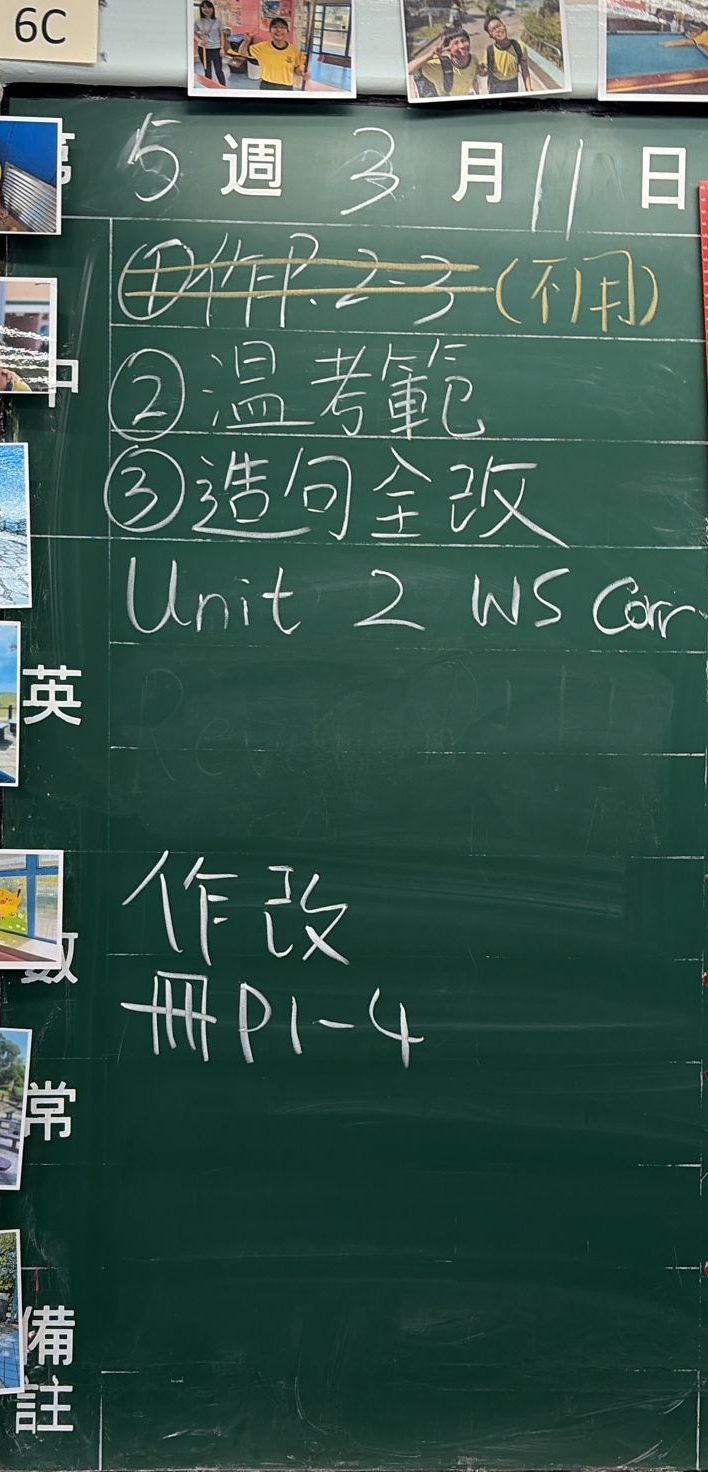 6C
第 5 週 3 月 11 日
①作P.2-3 (不用)
中
②溫考範
③造句全改
Unit 2 WS Corr
英
作改
數
冊P1-4
常
備註